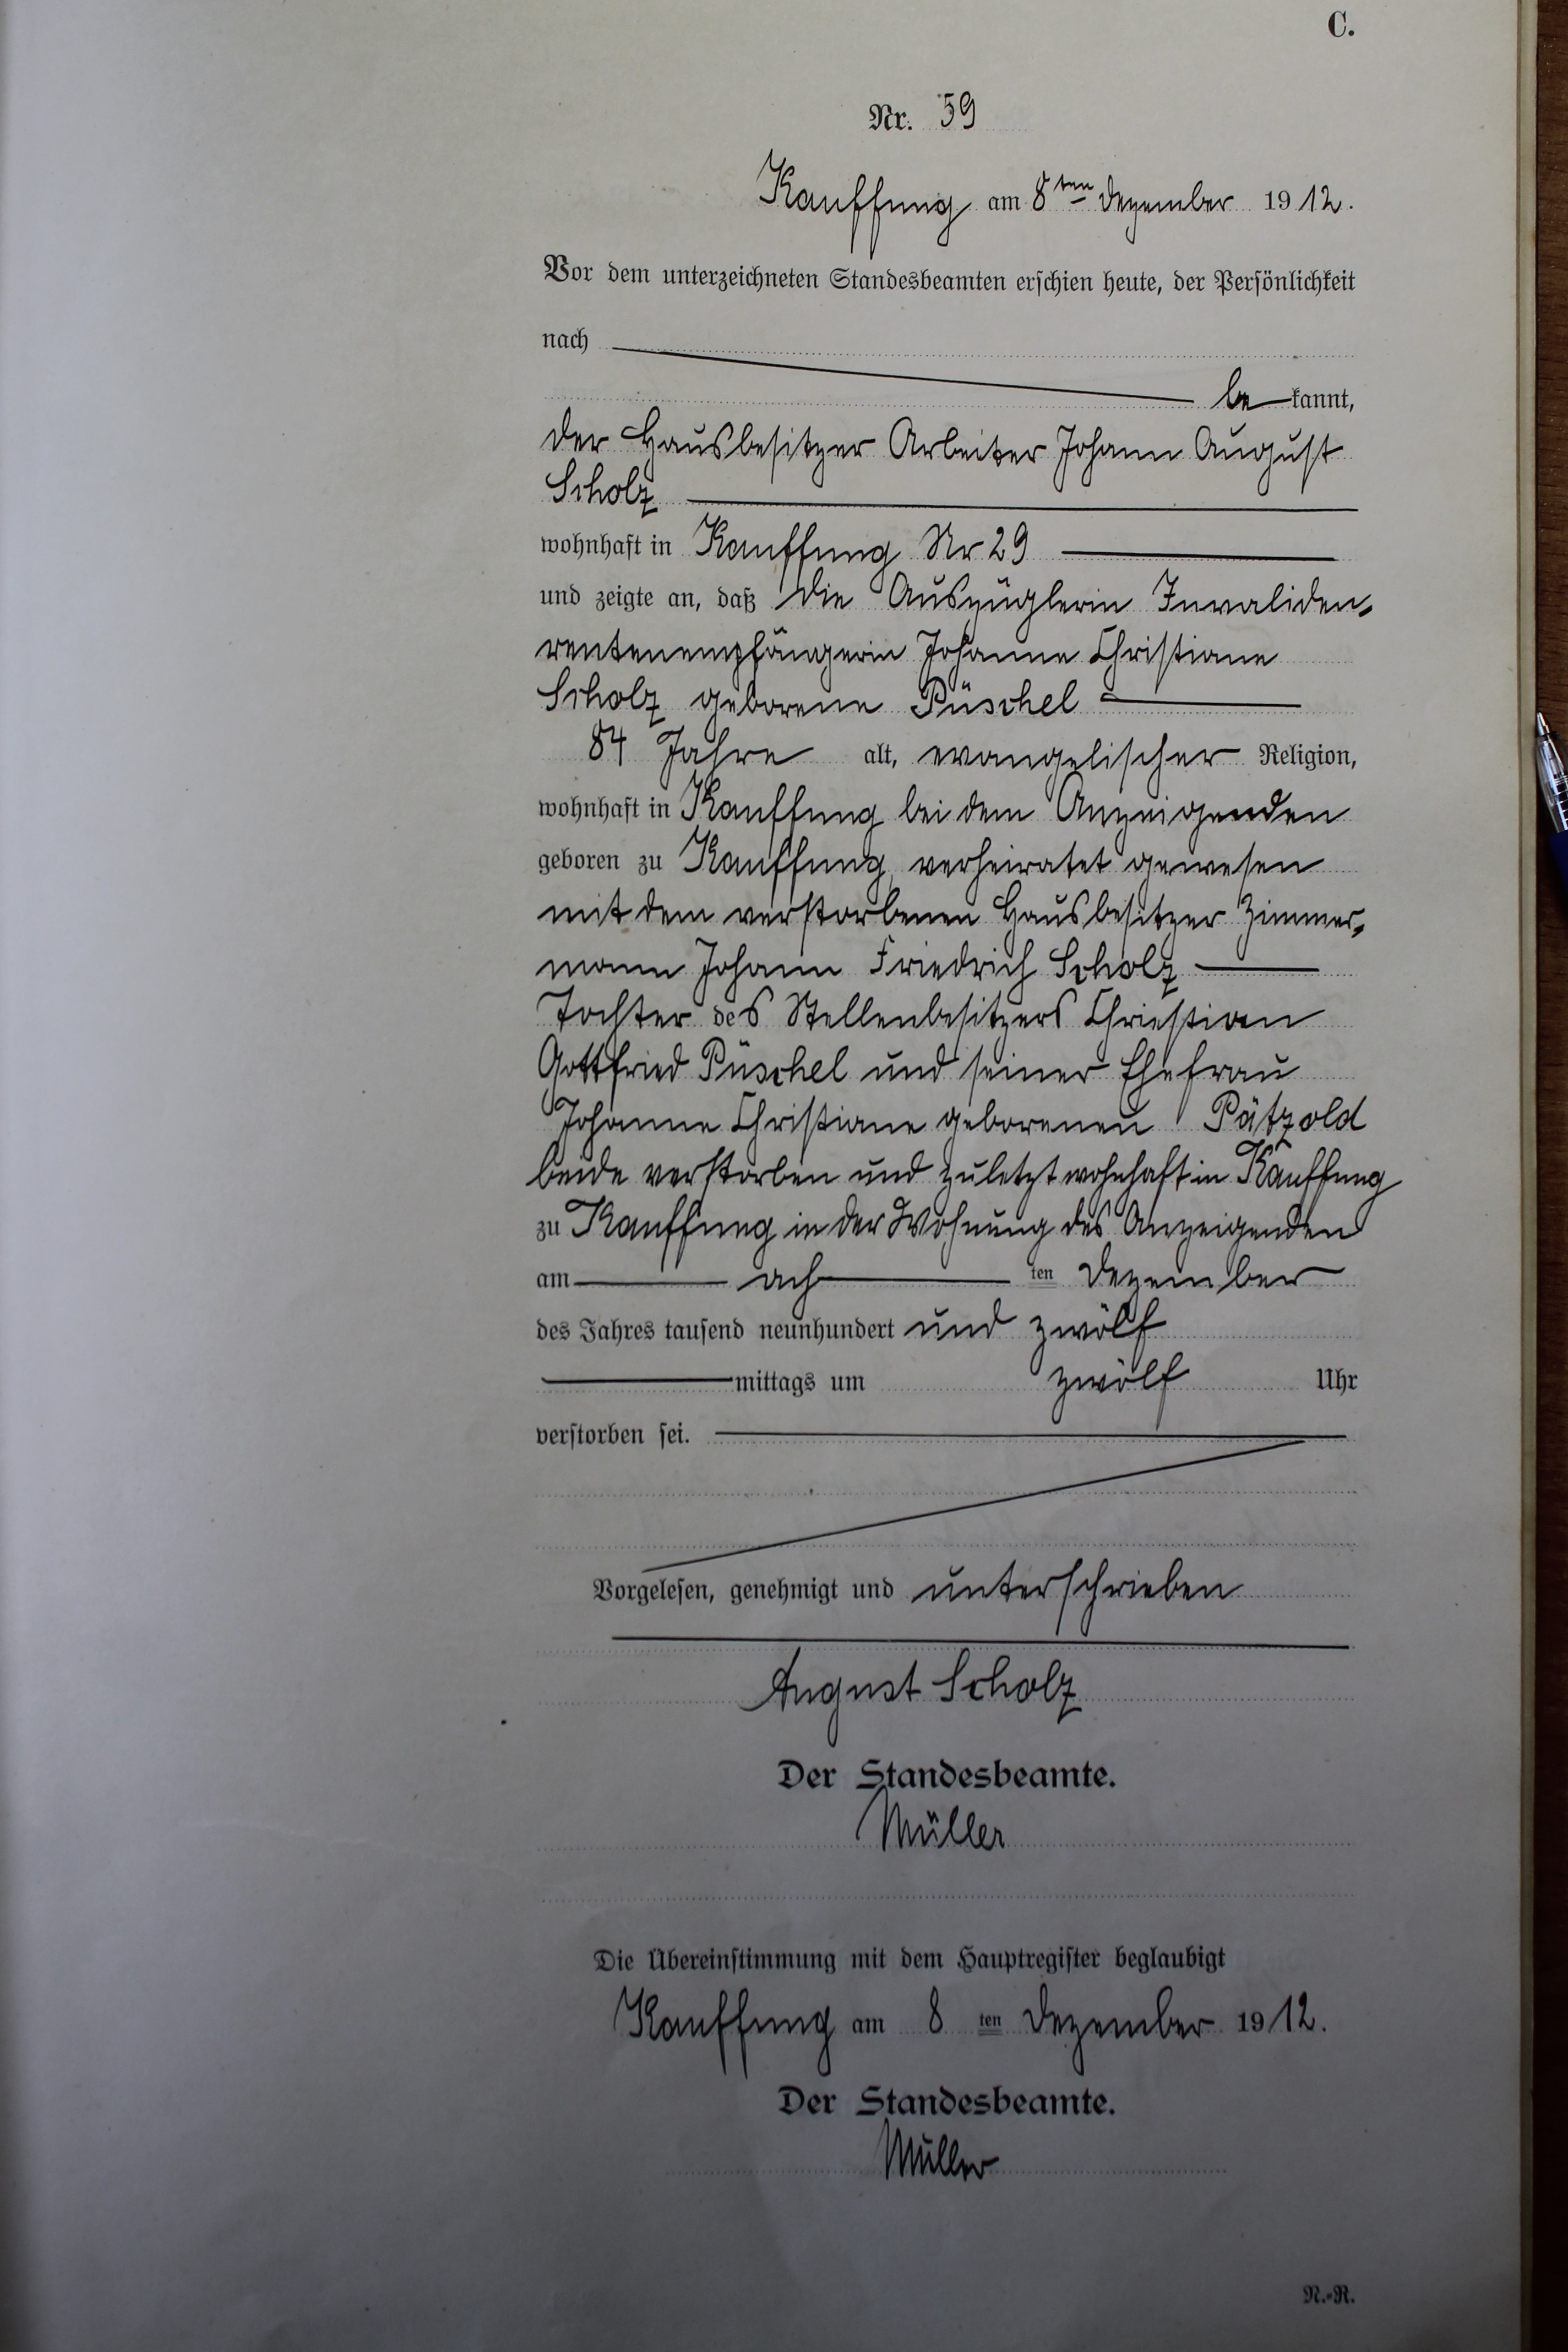 C.
Nr. 59
Kauffung am 8ten Dezember 1912.
Vor dem unterzeichneten Standesbeamten erschien heute, der Persönlichkeit
nach
be kannt,
der Hausbesitzer Arbeiter Johann August
Scholz
wohnhaft in Kauffung Nr 29
und zeigte an, daß die Auszüglerin Invaliden-
rentenempfängerin Johanne Christiane
Scholz geborene Püschel
84 Jahre alt, evangelischer Religion,
wohnhaft in Kauffung bei dem Anzeigenden
geboren zu Kauffung, verheiratet gewesen
mit dem verstorbenen Hausbesitzer Zimmer-
mann Johann Friedrich Scholz
Tochter des Stellenbesitzers Christian
Gottfried Püschel und seiner Ehefrau
Johanne Christiane geborenen Pätzold
beide verstorben und zuletzt wohnhaft in Kauffung
zu Kauffung in der Wohnung des Anzeigenden
am ach ten Dezember
des Jahres tausend neunhundert und zwölf
mittags um zwölf Uhr
verstorben sei.
Vorgelesen, genehmigt und unterschrieben
August Scholz
Der Standesbeamte.
Müller
Die Übereinstimmung mit dem Hauptregister beglaubigt
Kauffung am 8 ten Dezember 1912.
Der Standesbeamte.
Müller
N.-R.